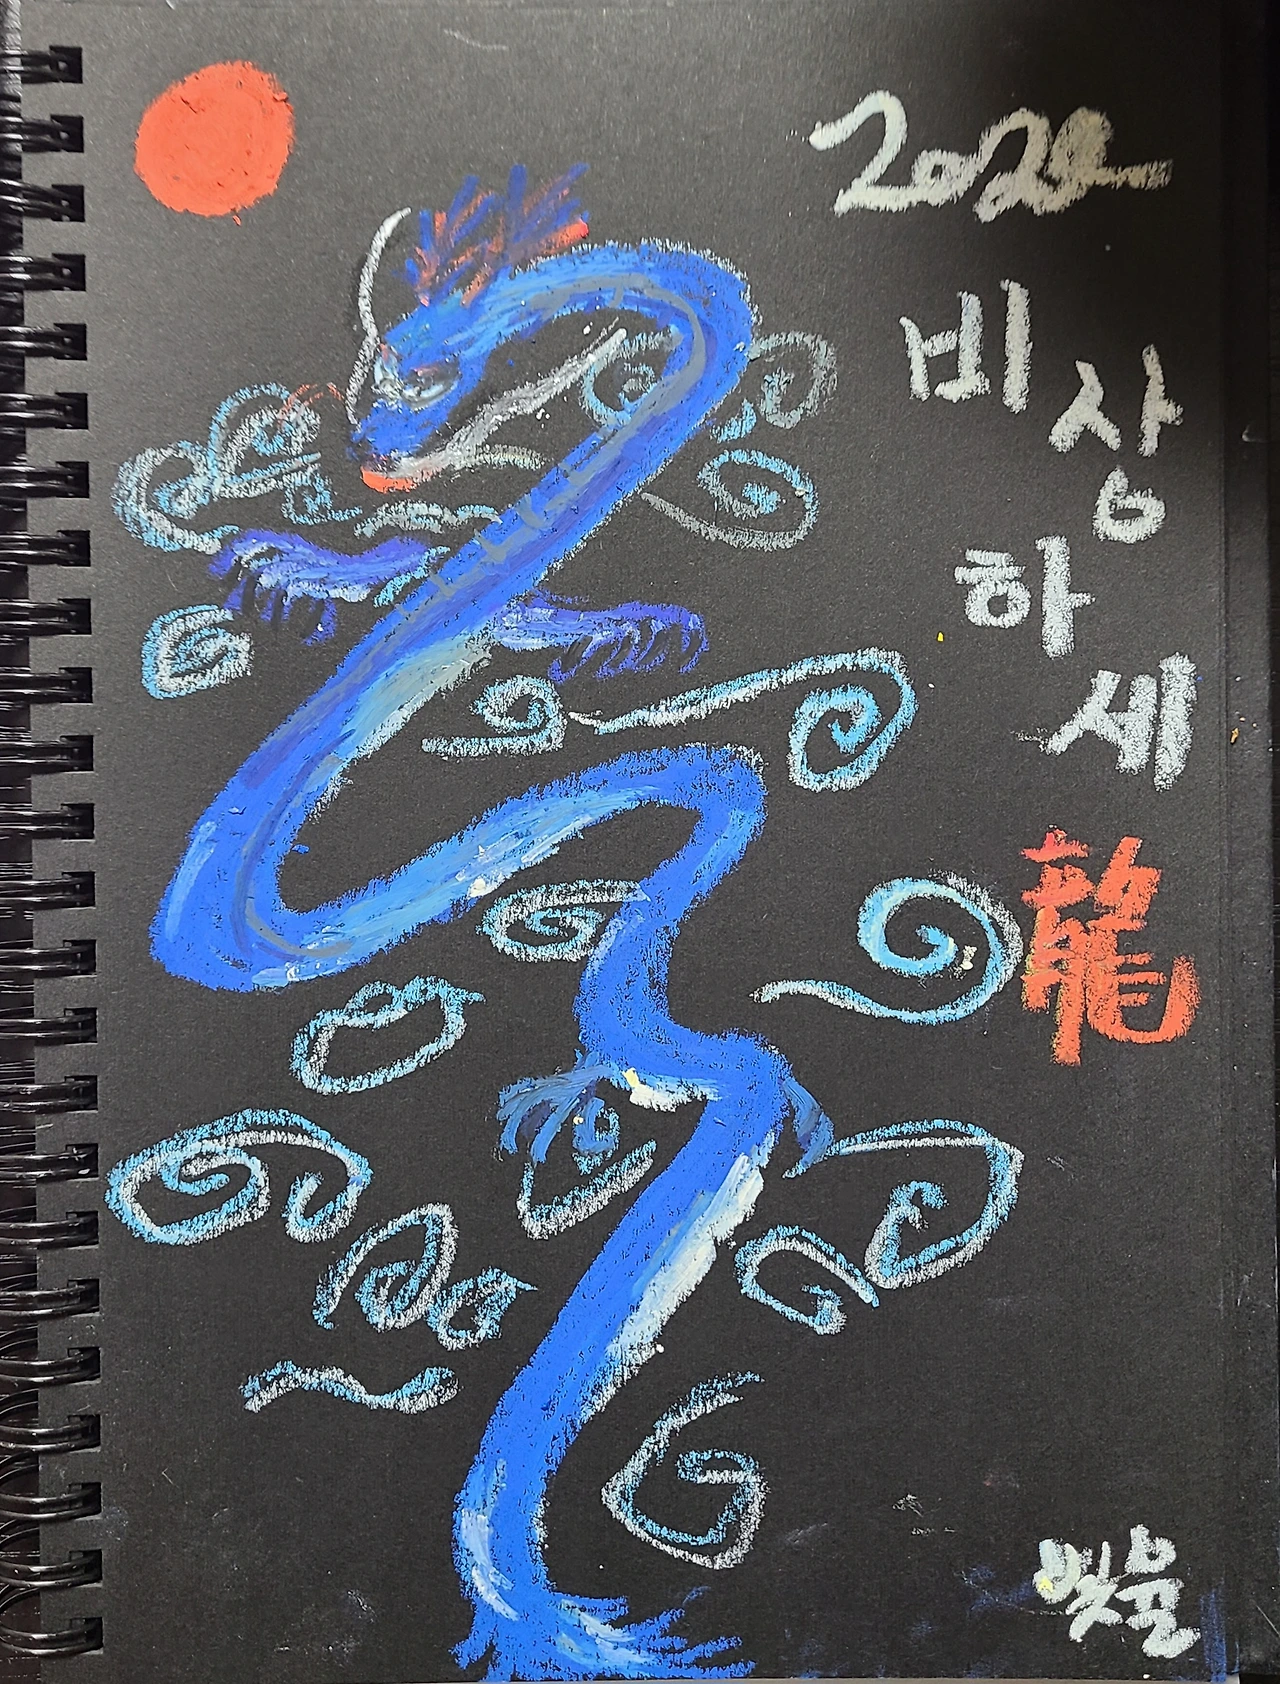 2024
비상
하세
龍
빛율